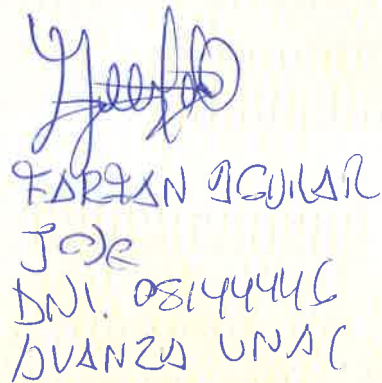 FARFAN AGUILAR
JOSE
DNI. 08144446
AVANZA UNAC